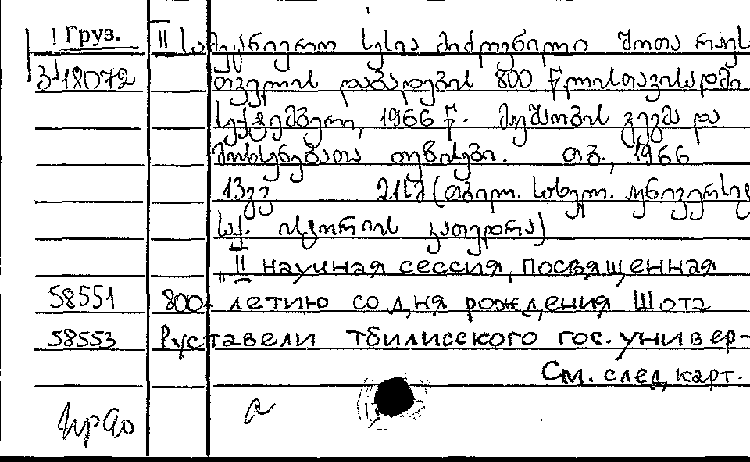 1 Груз. II სამეცნიერო სესია მიძღვნილი შოთა რუს
გ18072 თველის დაბადების 800 წლისთავისადმი
სექტემბერი, 1966 წ. მუშაობის გეგმა და
მოხსენებათა თეზისები. თბ., 1966
13გვ 21სმ (თბილ. სახელ. უნივერსიტ
საქ. ისტორიის კათედრა)
II научная сессия, посвященная
58551 800 летию со дня рождения Шота
58553 Руставели Тбилисского гос. универ-
См. след. карт.
а